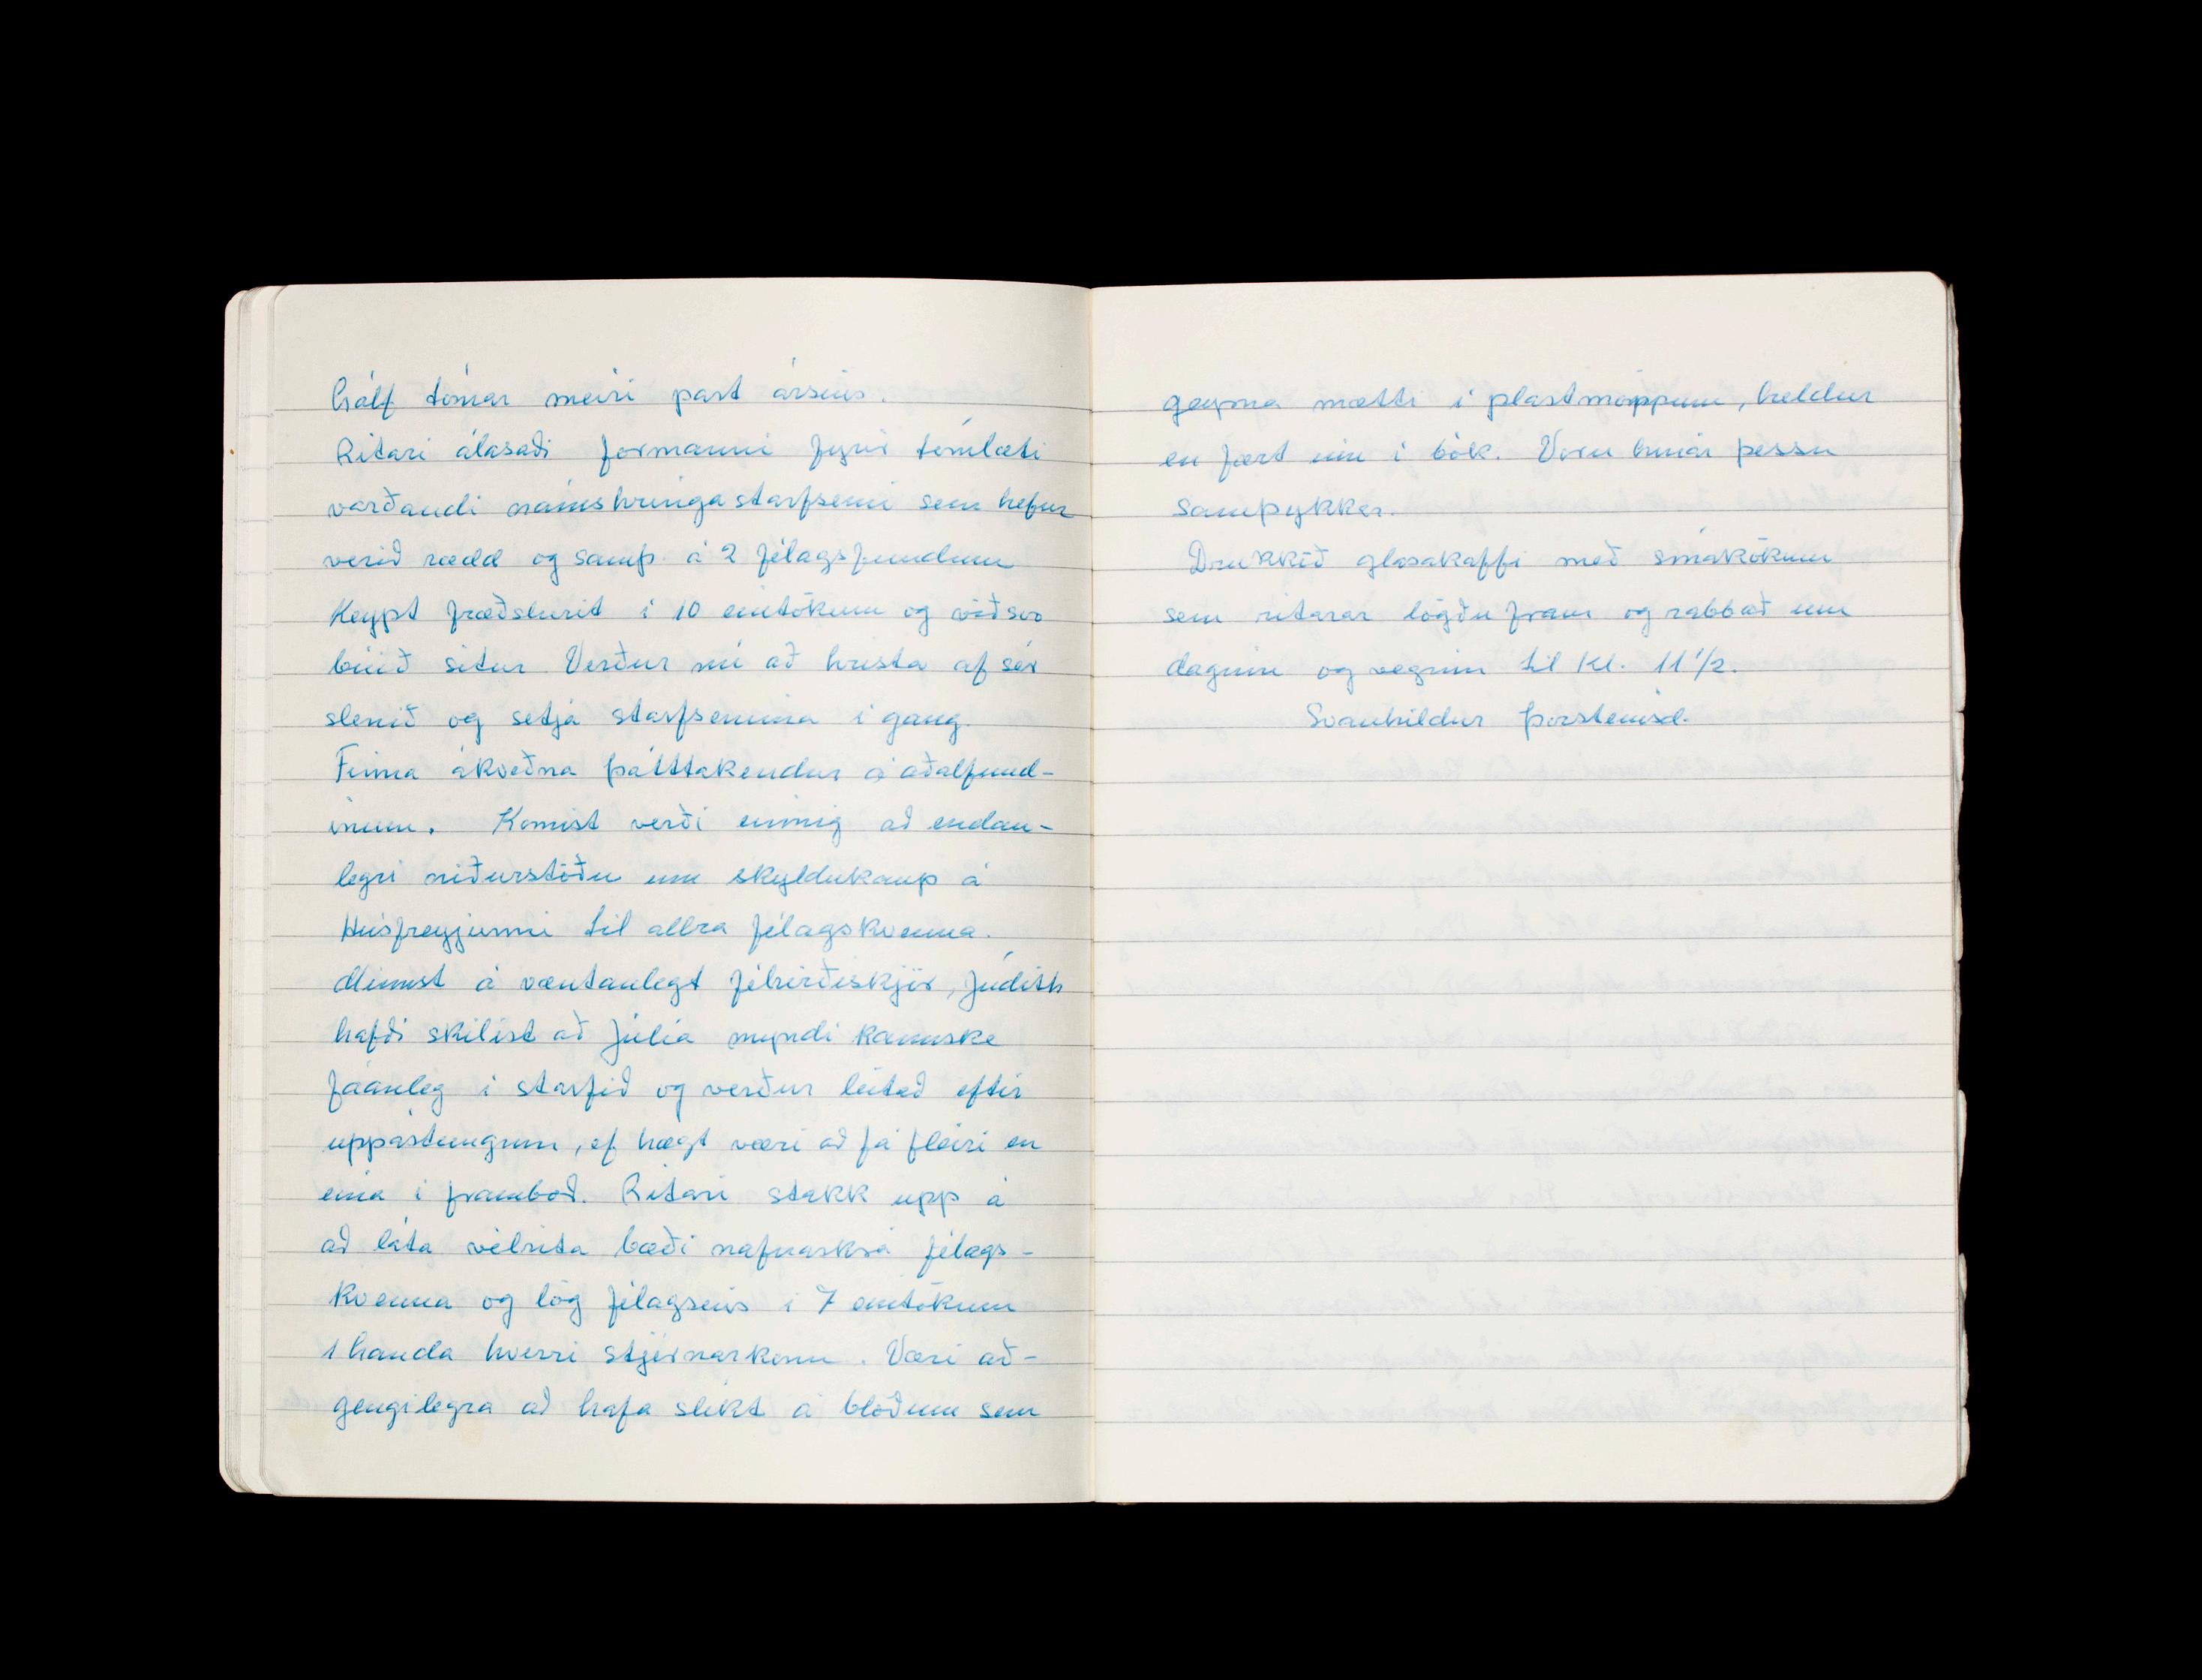 hálf tómar meiri part ársins.
Ritari álasaði formanni fyrir tómlæti
varðandi námshringastarfsemi sem hefur
verið rædd og samþ. á 2 félagsfundum
Keypt fræðslurit í 10 eintökum og við svo
búið situr. Verður nú að hrista af sér
slenið og setja starfsemina í gang.
Finna ákveðna þátttakendur á aðalfund-
inum. Komist verði einnig að endan-
legri niðurstöðu um skyldukaup á
Húsfreyjunni til allra félagskvenna.
Minnst á væntanlegt féhirðiskjör, Júdith
hafði skilist að Júlía myndi kannske
fáanleg í starfið og verður leitað eftir
uppástungum, ef hægt væri að fá fleiri en
eina í framboð. Ritari stakk upp á
að láta vélrita bæði nafnaskrá félags-
kvenna og lög félagsins í 7 eintökum
1 handa hverri stjórnarkonu. Væri að-
gengilegra að hafa slíkt á blöðum sem
geyma mætti í plastmöppum, heldur
en fært inn í bók. Voru hinar þessu
samþykkar.
Drukkið glasakaffi með smákökum
sem ritarar lögðu fram og rabbað um
daginn og veginn til kl. 11 1/2.
Svanhildur Þorsteinsd.